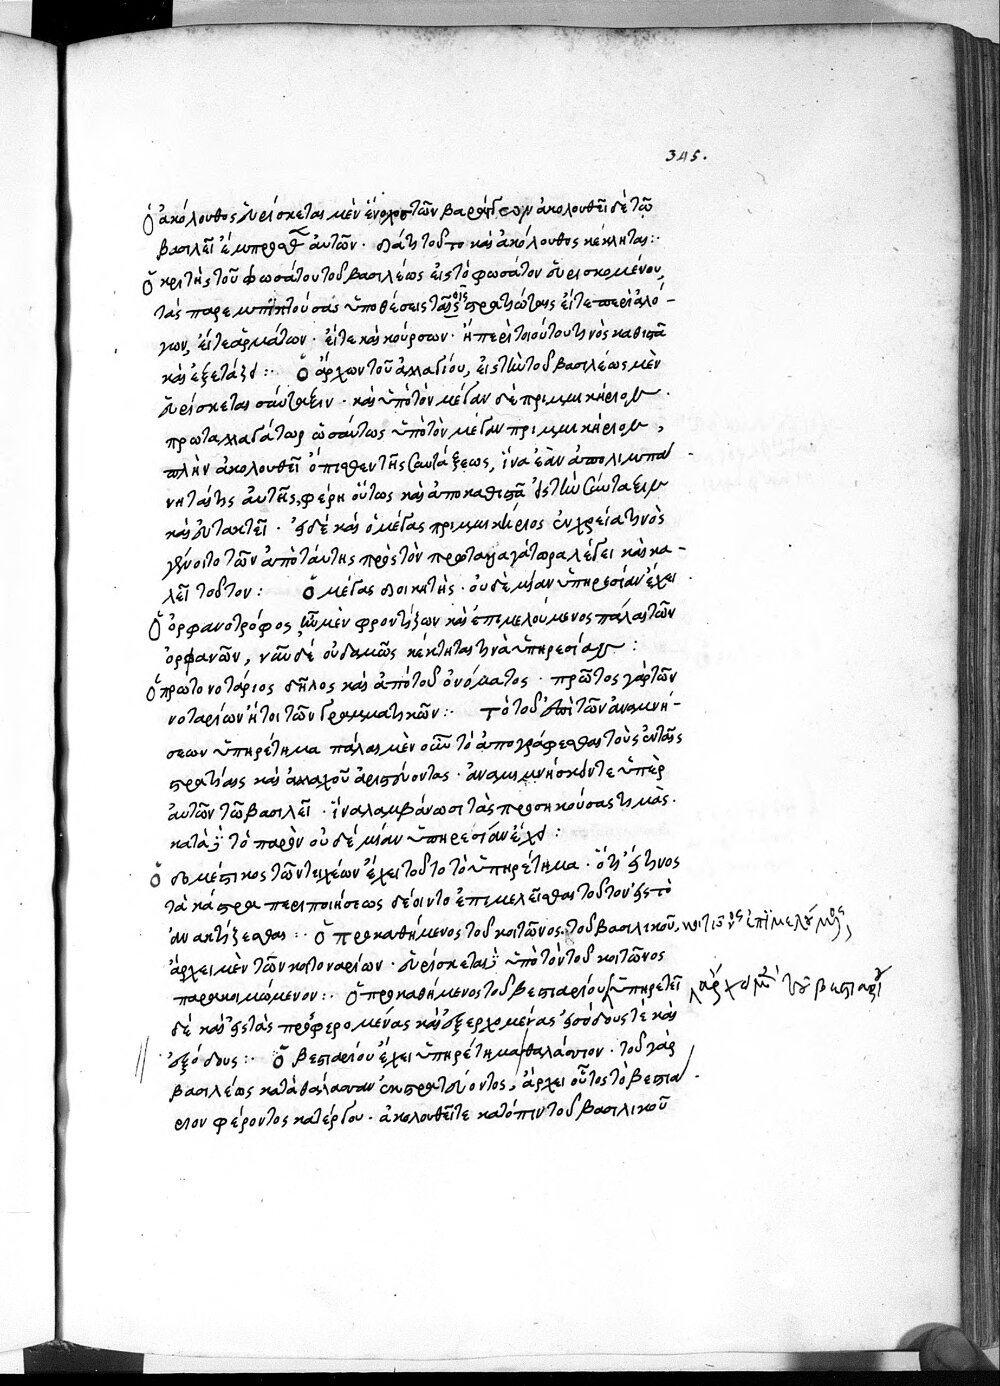 345.
Ὁ ἀκόλουθος εὑρίσκεται μὲν ἔνοχος τῶν βαράγγων ἀκολουθεῖ δὲ τῶ
βασιλεῖ ἔμπροσθεν αὐτῶν· διὰ τοῦτο καὶ ἀκόλουθος κέκληται:·
Ὁ κριτὴς τοῦ φωσάτου τοῦ βασιλέως εἰς τὸ φωσάτον εὑρισκομένου,
τὰς παρεμπιπτούσας ὑποθέσεις τοῖς στρατιώταις εἴτε περὶ ἀλό-
γων, εἴτε ἁρμάτων· εἴτε καὶ κούρσων· ἢ περὶ τοιούτου τινὸς καθιστᾶ
καὶ ἐξετάζει:· Ὁ ἄρχων τοῦ ἀλλαγίου, εἰς τὴν τοῦ βασιλέως μὲν
εὑρίσκεται σύνταξιν· καὶ ὑπὸ τὸν μέγαν δὲ πριμμικήριον·
πρωταλλαγάτωρ ὡσαύτως ὑπὸ τὸν μέγαν πριμμικήριον,
πλὴν ἀκολουθεῖ ὄπισθεν τῆς συντάξεως, ἵνα ἐὰν ἀπολιμπά-
νηταί τις αὐτῆς, φέρη οὗτος καὶ ἀποκαθιστᾶ εἰς τὴν σύνταξιν
καὶ εὐτακτεῖ· εἰ δὲ καὶ ὁ μέγας πριμμικήριος ἐν χρεία τινὸς
γένοιτο τῶν ἀπὸ ταύτης πρὸς τὸν πρωταλλαγάτωρα λέγει καὶ κα-
λεῖ τοῦτον: Ὁ μέγας διοικητὴς· οὐδὲ μίαν ὑπηρεσίαν ἔχει·
Ὁ ὀρφανοτρόφος ἦν μὲν φροντίζων καὶ ἐπιμελούμενος πάλαι τῶν
ὀρφανῶν, νῦν δὲ οὐδαμῶς κέκτηταί τινὰ ὑπηρεσίαν:
Ὁ πρωτονοτάριος δῆλος καὶ ἀπὸ τοῦ ὀνόματος· πρῶτος γὰρ τῶν
νοταρίων ἤτοι τῶν γραμματικῶν:· Τὸ τοῦ ἐπὶ τῶν ἀναμνή-
σεων ὑπηρέτημα πάλαι μὲν οὖν τὸ ἀπογράφεσθαι τοὺς ἐν ταῖς
στρατίαις καὶ ἀλλαχοῦ ἀριστεύοντας· ἀναμιμνήσκειν τε ὑπὲρ
αὐτῶν τῶ βασιλεῖ· ἵνα λαμβάνωσι τὰς προσηκούσας τιμὰς·
κατὰ δὲ τὸ παρὸν οὐδὲ μίαν ὑπηρεσίαν ἔχει:
Ὁ δομέστικος τῶν τειχέων ἔχει τοῦτο τὸ ὑπηρέτημα· ὅτι εἴ τινος
τὰ κάστρα περιποιήσεως δέοιντο ἐπιμελεῖσθαι τοῦτον εἰς τὸ
ἀνακτίζεσθαι:· Ὁ προκαθήμενος τοῦ κοιτῶνος τοῦ βασιλικοῦ,
ἄρχει μὲν τῶν κοιτοναρίων· εὑρίσκεται δὲ ὑπὸ τὸν τοῦ κοιτῶνος
παρακοιμώμενον:· Ὁ προκαθήμενος τοῦ βεστιαρίου ὑπηρετεῖ
δὲ καὶ εἰς τὰς προσφερομένας καὶ ἐξερχομένας εἰσόδους τὲ καὶ
ἐξόδους:· Ὁ βεστιαρίου ἔχει ὑπηρέτημα θαλάσσιον· τοῦ γὰρ
βασιλέως κατὰ θάλασσαν ἐκστρατεύοντος, ἄρχει οὗτος τὸ βεστιά-
ριον φέροντος κατέργου· ἀκολουθεῖ τε κατόπιν τοῦ βασιλικοῦ